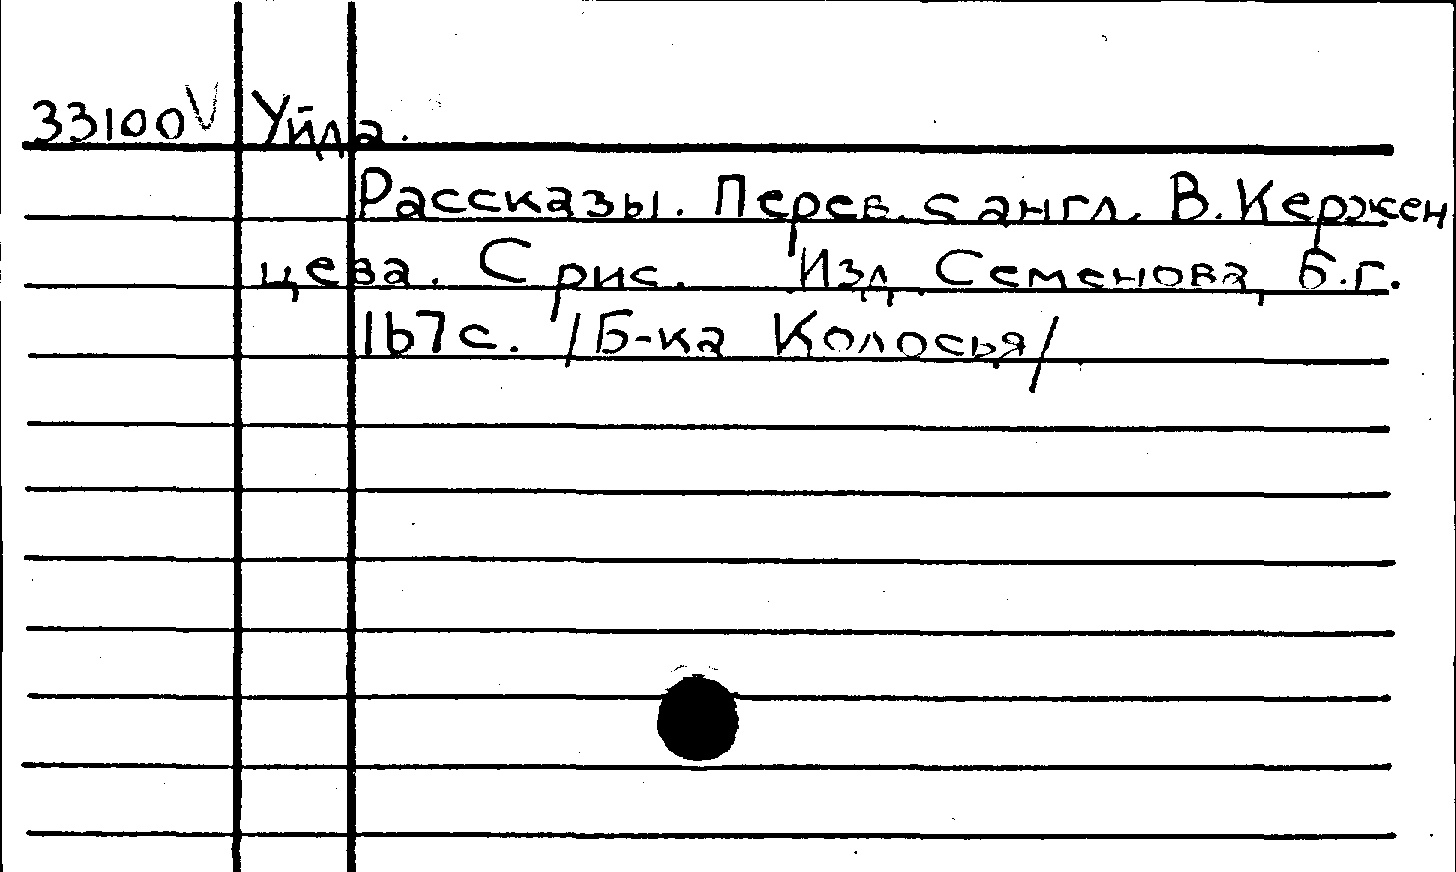 33100V Уйда.
Рассказы. Перев. с англ. В. Кержен
цева. С рис. Изд. Семенова, Б.г.
167с. /Б-ка Колосья/